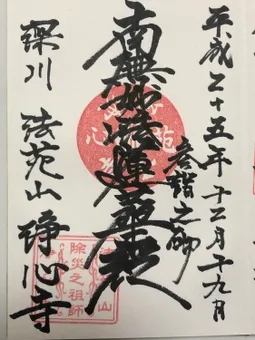 平成二十五年十二月十九月
参詣之砌
南無妙法蓮華経
深川 法苑山 浄心寺
除災之祖師